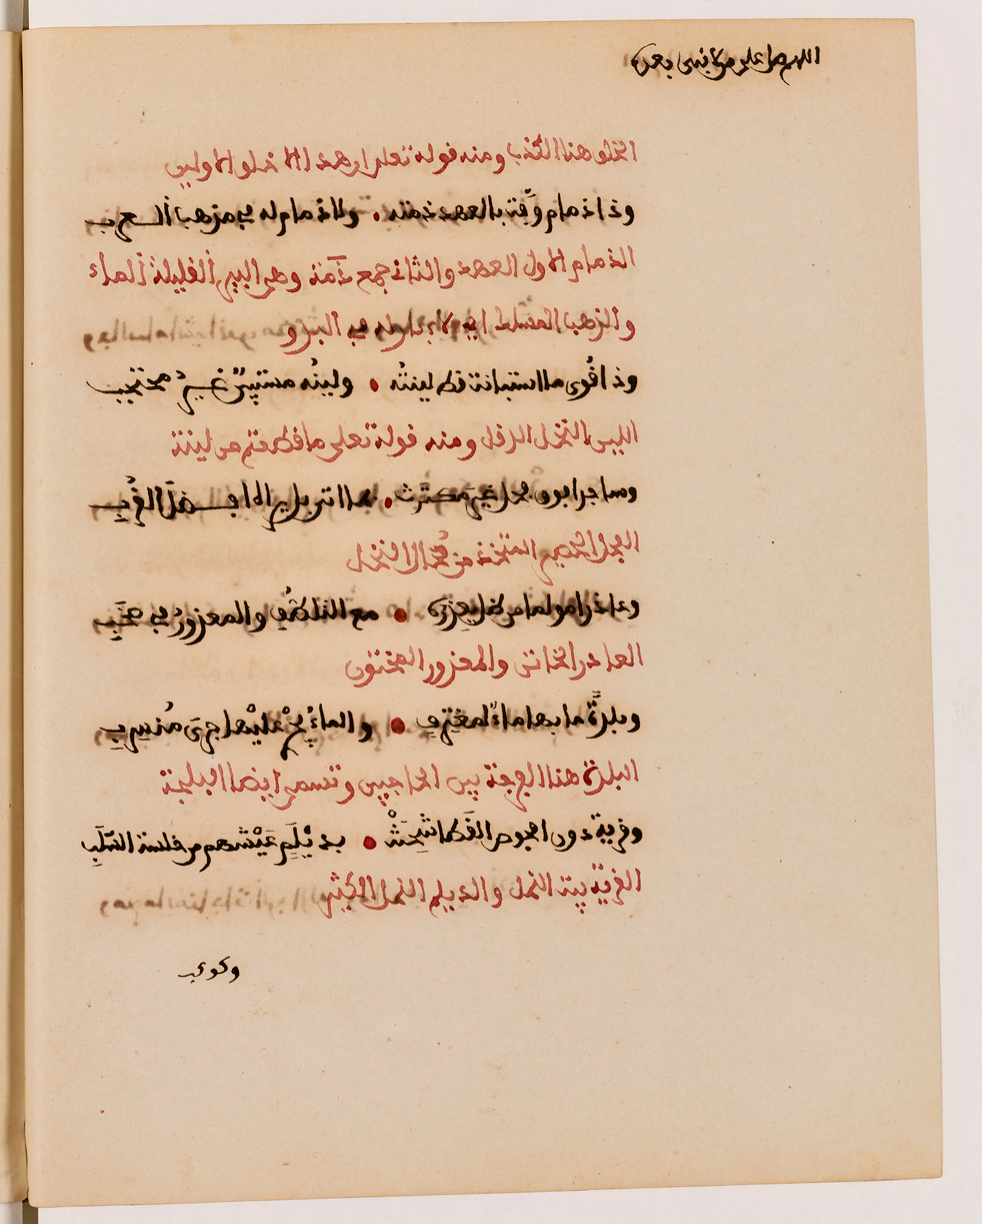 اللهم صل على من لا نبي بعده
الخلق هنا الكذب ومنه قوله تعلى ان هذا الا خلق الاولين
وذا ذمام وقت بالعهد ذمته • ولا ذمام له في مذهب العرب
الذمام الاول العهد والثاني جمع ذمة وهي البير القليلة الماء
والمذهب المسلك اي لا ءابار له في البدو
وذا قوى ما استبانت قط لينته • ولينه مستبين غير محتجب
اللين النخل الدقل ومنه قوله تعلى ما قطعتم من لينة
وساجدا فوق فحل غير مكترث • بما اتى بل يراه افضل القرب
الفحل الحصير المتخذ من فحال النخل
وعاذرا مولما من ظل يعذره • مع التلطف والمعذور في صخب
العاذر الخاتن والمعذور المختون
وبلدة ما بها ماء لمغترف • والماء يجري عليها جري منسرب
البلدة هنا الفرجة بين الحاجبين وتسمى ايضا البلجة
وقرية دون افحوص القطا شحنت • بديلم عيشهم من خلسة السلب
القرية بيت النمل والديلم النمل الكثير
وكوكب